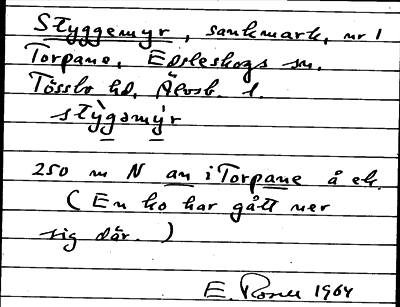 Styggemyr, sankmark, nr 1
Torpane, Edsleskogs sn.
Tössbo hd, Älvsb. l.
stỳgəmýr
250 m N an i Torpane å ek.
(En ko har gått ner
sig där.)
E. Rosell 1964